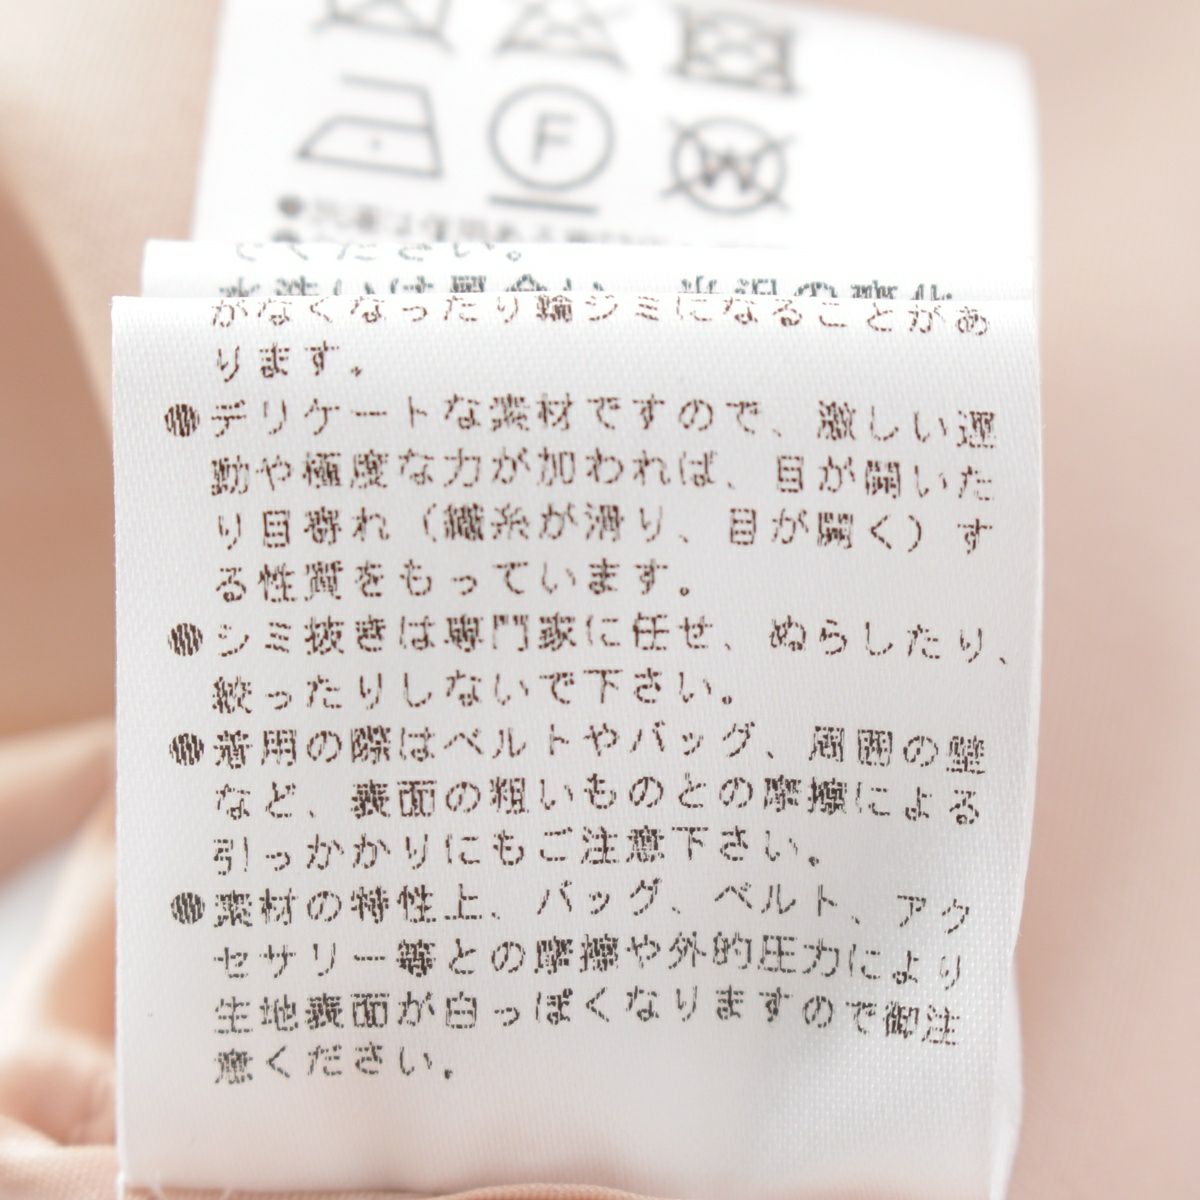 F
W
でください。
がなくなったり輪ジミになることがあ
ります。
●デリケートな素材ですので、激しい運
動や極度な力が加われば、目が開いた
り目寄れ（織糸が滑り、目が開く）す
る性質をもっています。
●シミ抜きは専門家に任せ、ぬらしたり、
絞ったりしないで下さい。
●着用の際はベルトやバッグ、周囲の壁
など、表面の粗いものとの摩擦による
引っかかりにもご注意下さい。
●素材の特性上、バッグ、ベルト、アク
セサリー等との摩擦や外的圧力により
生地表面が白っぽくなりますので御注
意ください。